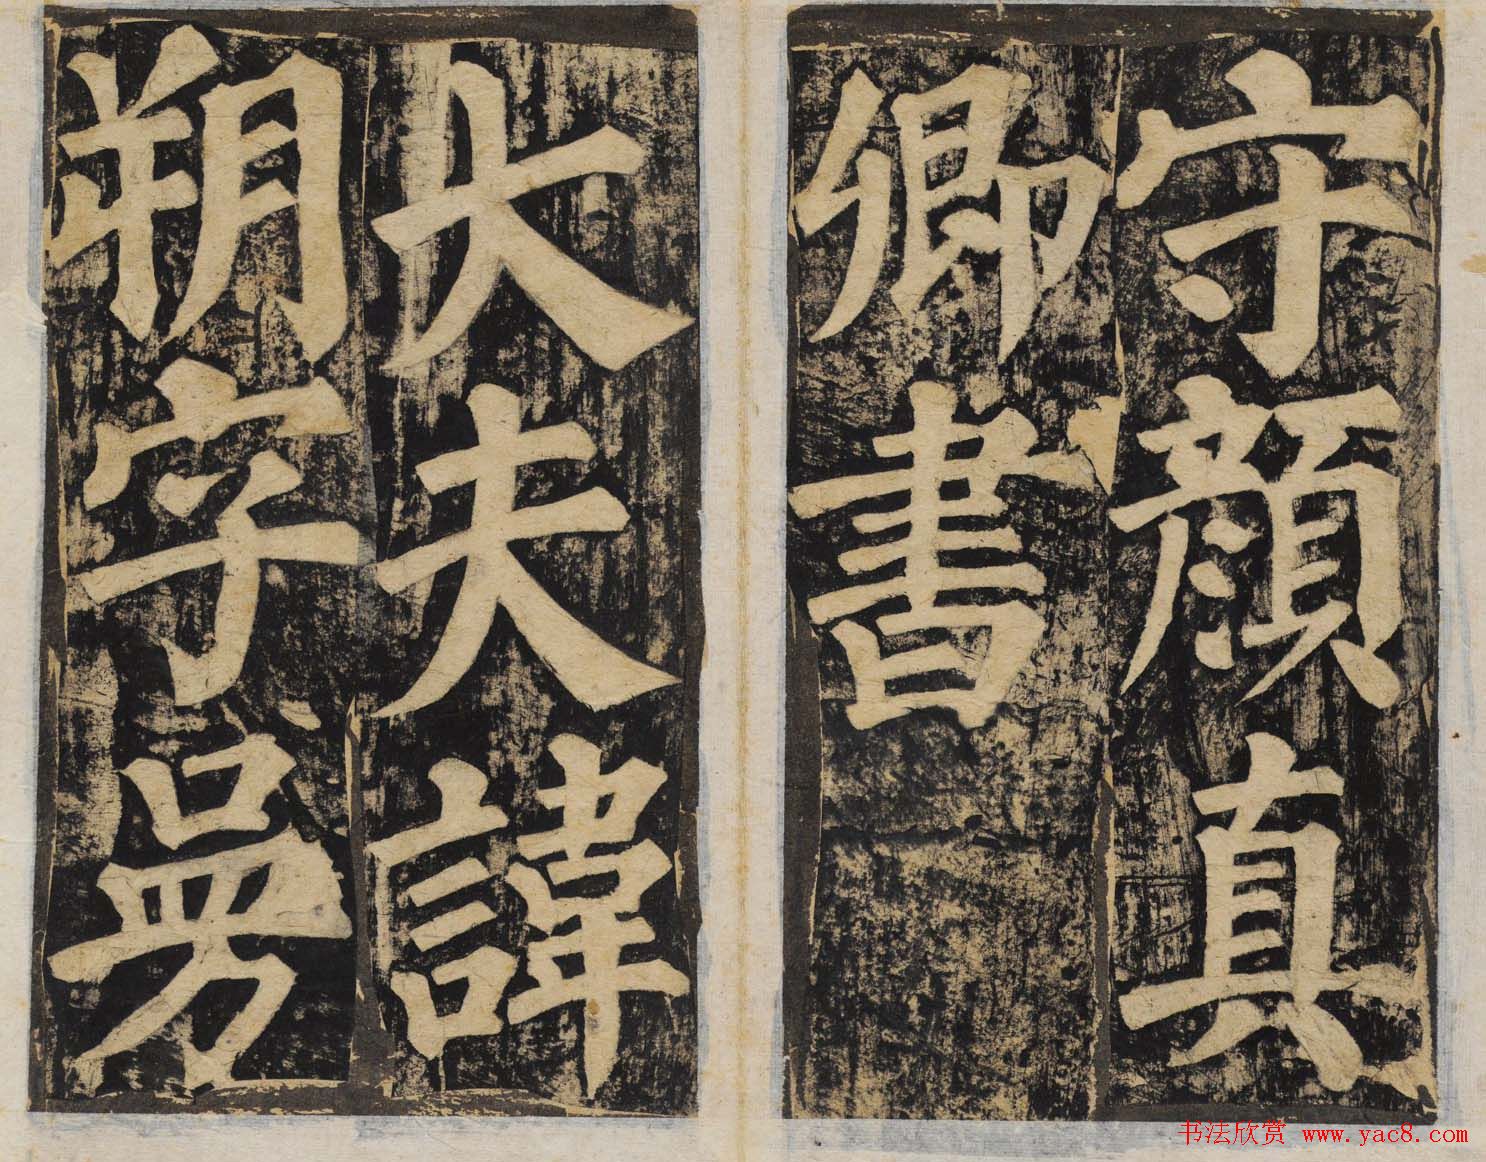 守顏真
卿書
大夫諱
朔字曼
书法欣赏 www.yac8.com